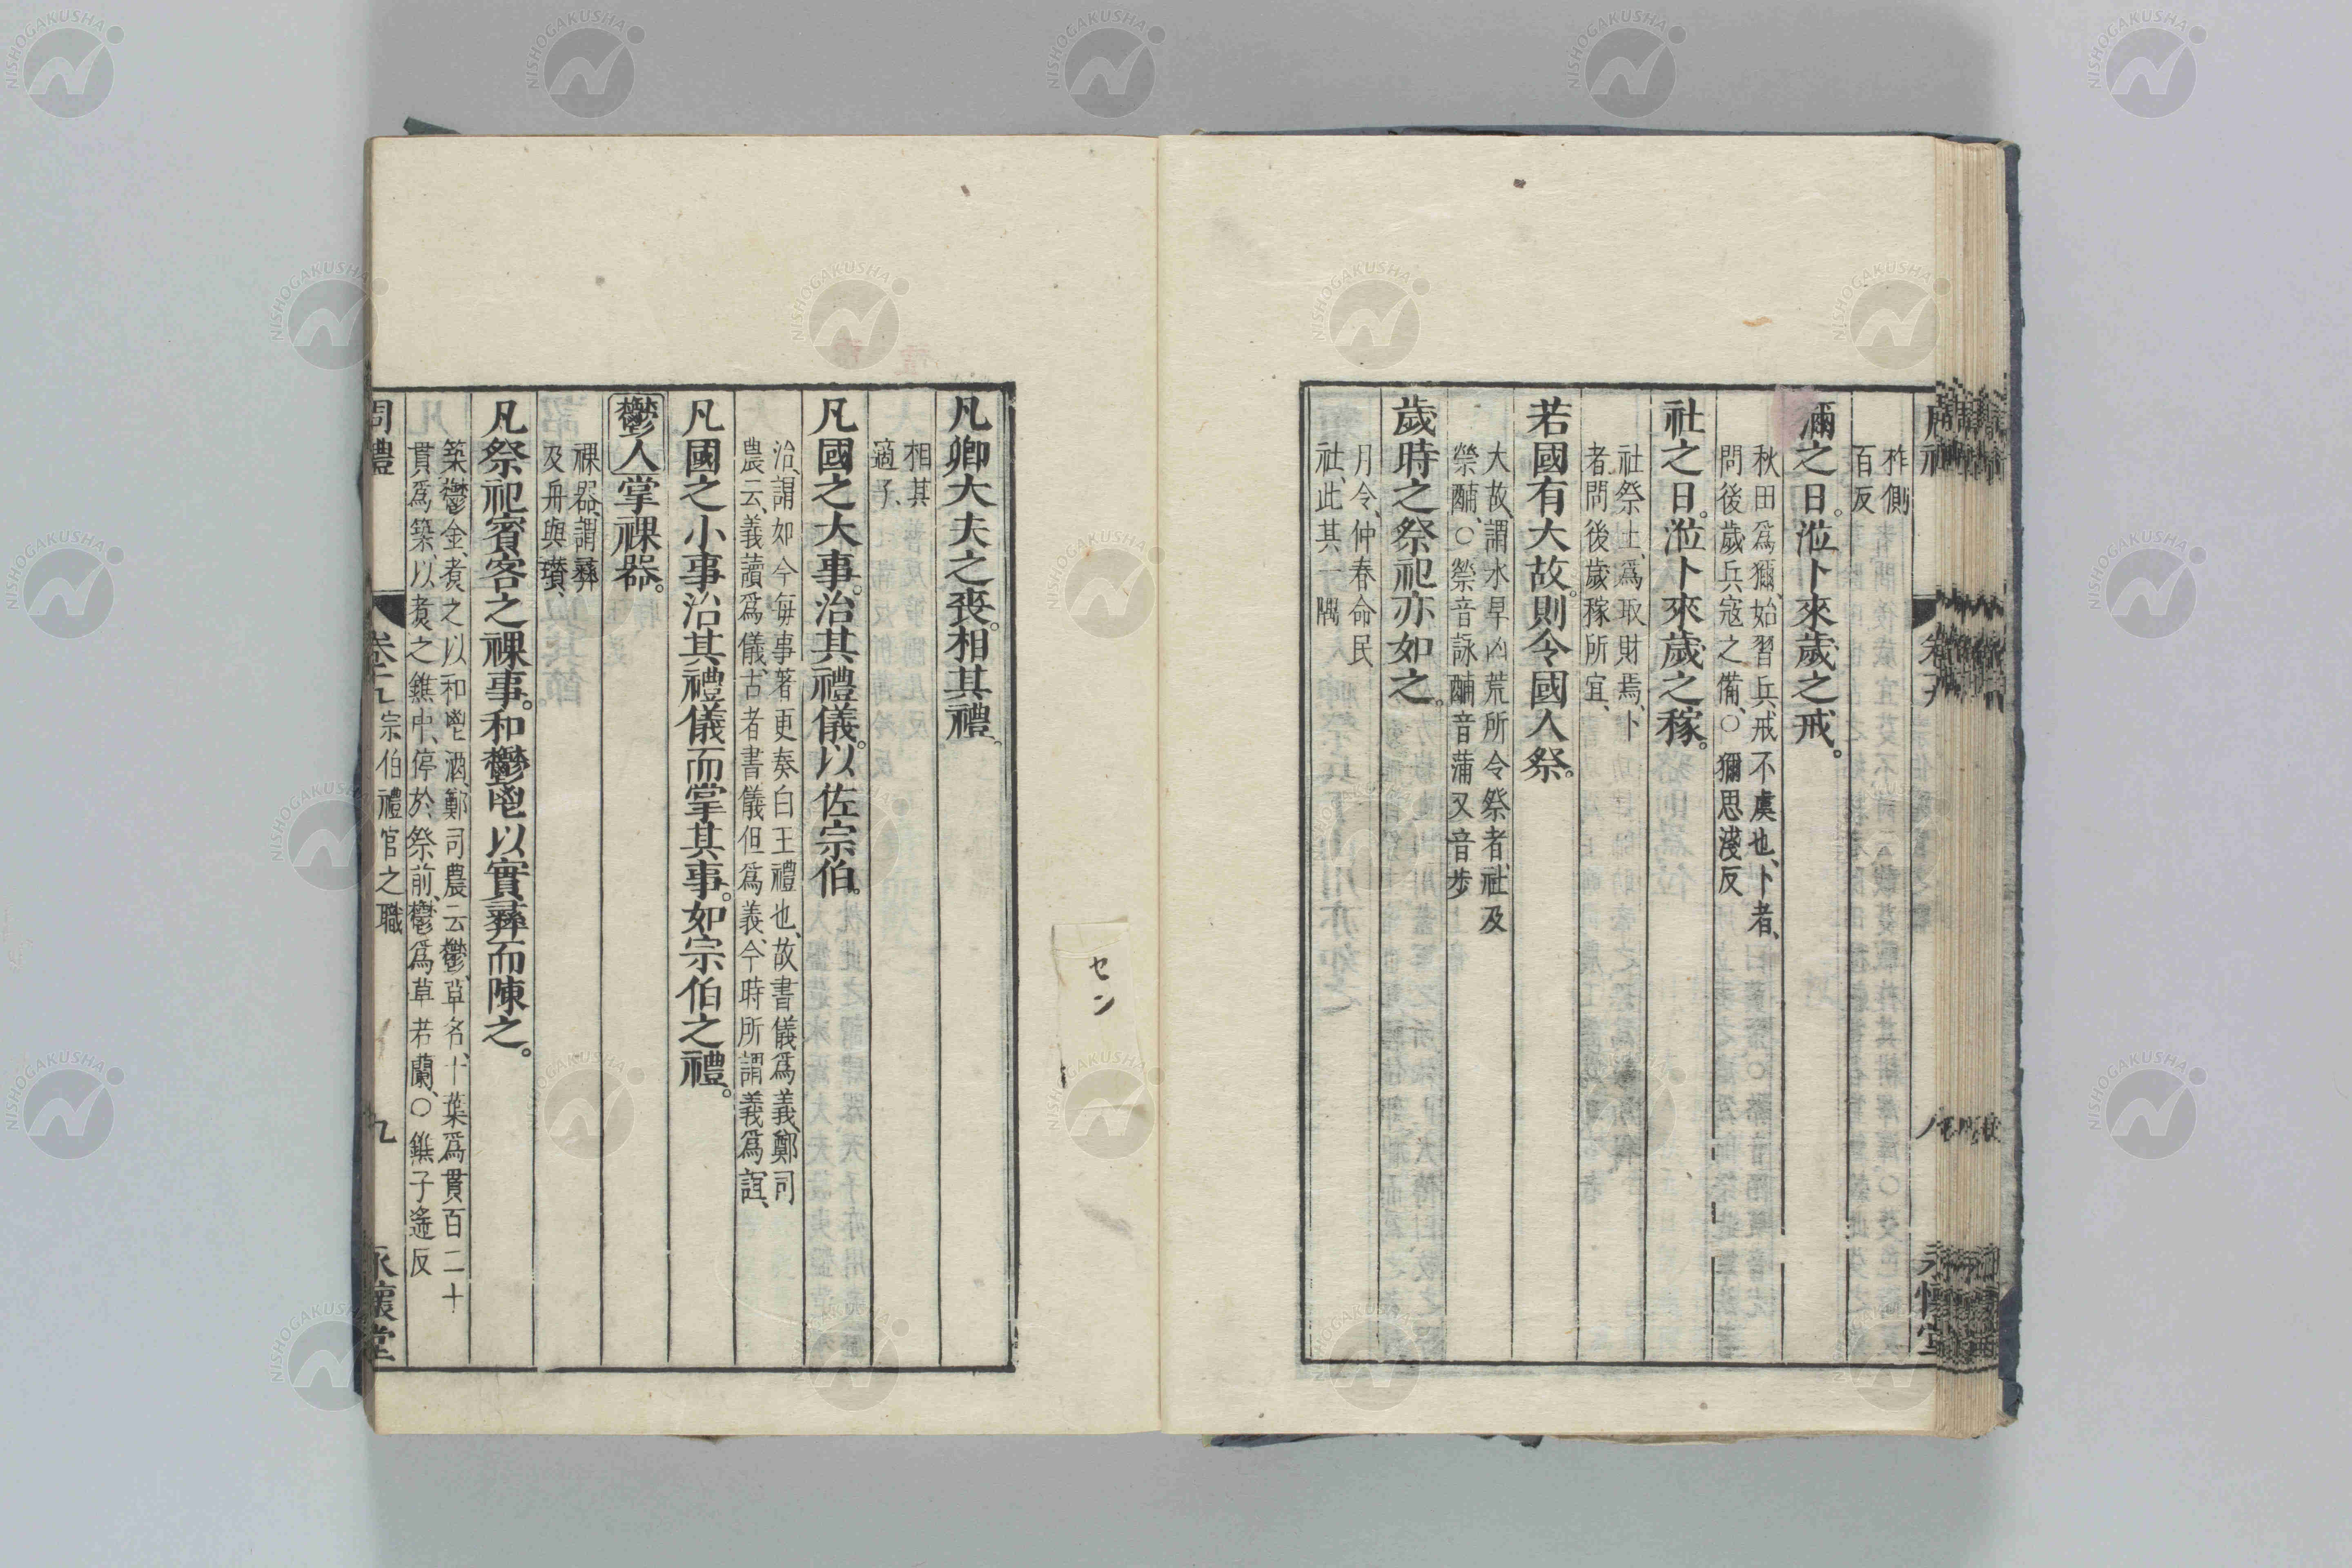 柞側
百反
獮之日。涖卜來歲之戒。
秋田爲獮、始習兵、戒不虞也、卜者、
問後歲兵寇之備、〇獮思淺反
社之日。涖卜來歲之稼。
社祭土、爲取財焉、卜
者、問後歲稼所宜、
若國有大故。則令國人祭。
大故、謂水旱凶荒所令祭者、社及
禜酺、〇禜音詠酺音蒲又音步
歲時之祭祀亦如之。
月令、仲春命民
社、此其一隅
凡卿大夫之喪。相其禮。
相其
適子、
凡國之大事。治其禮儀。以佐宗伯。
治、謂如今每事著更奏白王禮也、故書儀爲義、鄭司
農云、義讀爲儀、古者書儀但爲義、今時所謂義爲誼、
凡國之小事治其禮儀而掌其事。如宗伯之禮。
鬱人掌祼器。
祼器、謂彝
及舟與瓚、
凡祭祀賓客之祼事。和鬱鬯以實彝而陳之。
築鬱金、煑之以和鬯酒、鄭司農云鬱、草名、十葉爲貫百二十
貫爲築以煑之鐎中、停於祭前、鬱爲草若蘭、〇鐎子遙反
周禮 卷十九 宗伯禮官之職 九 永懷堂
セン